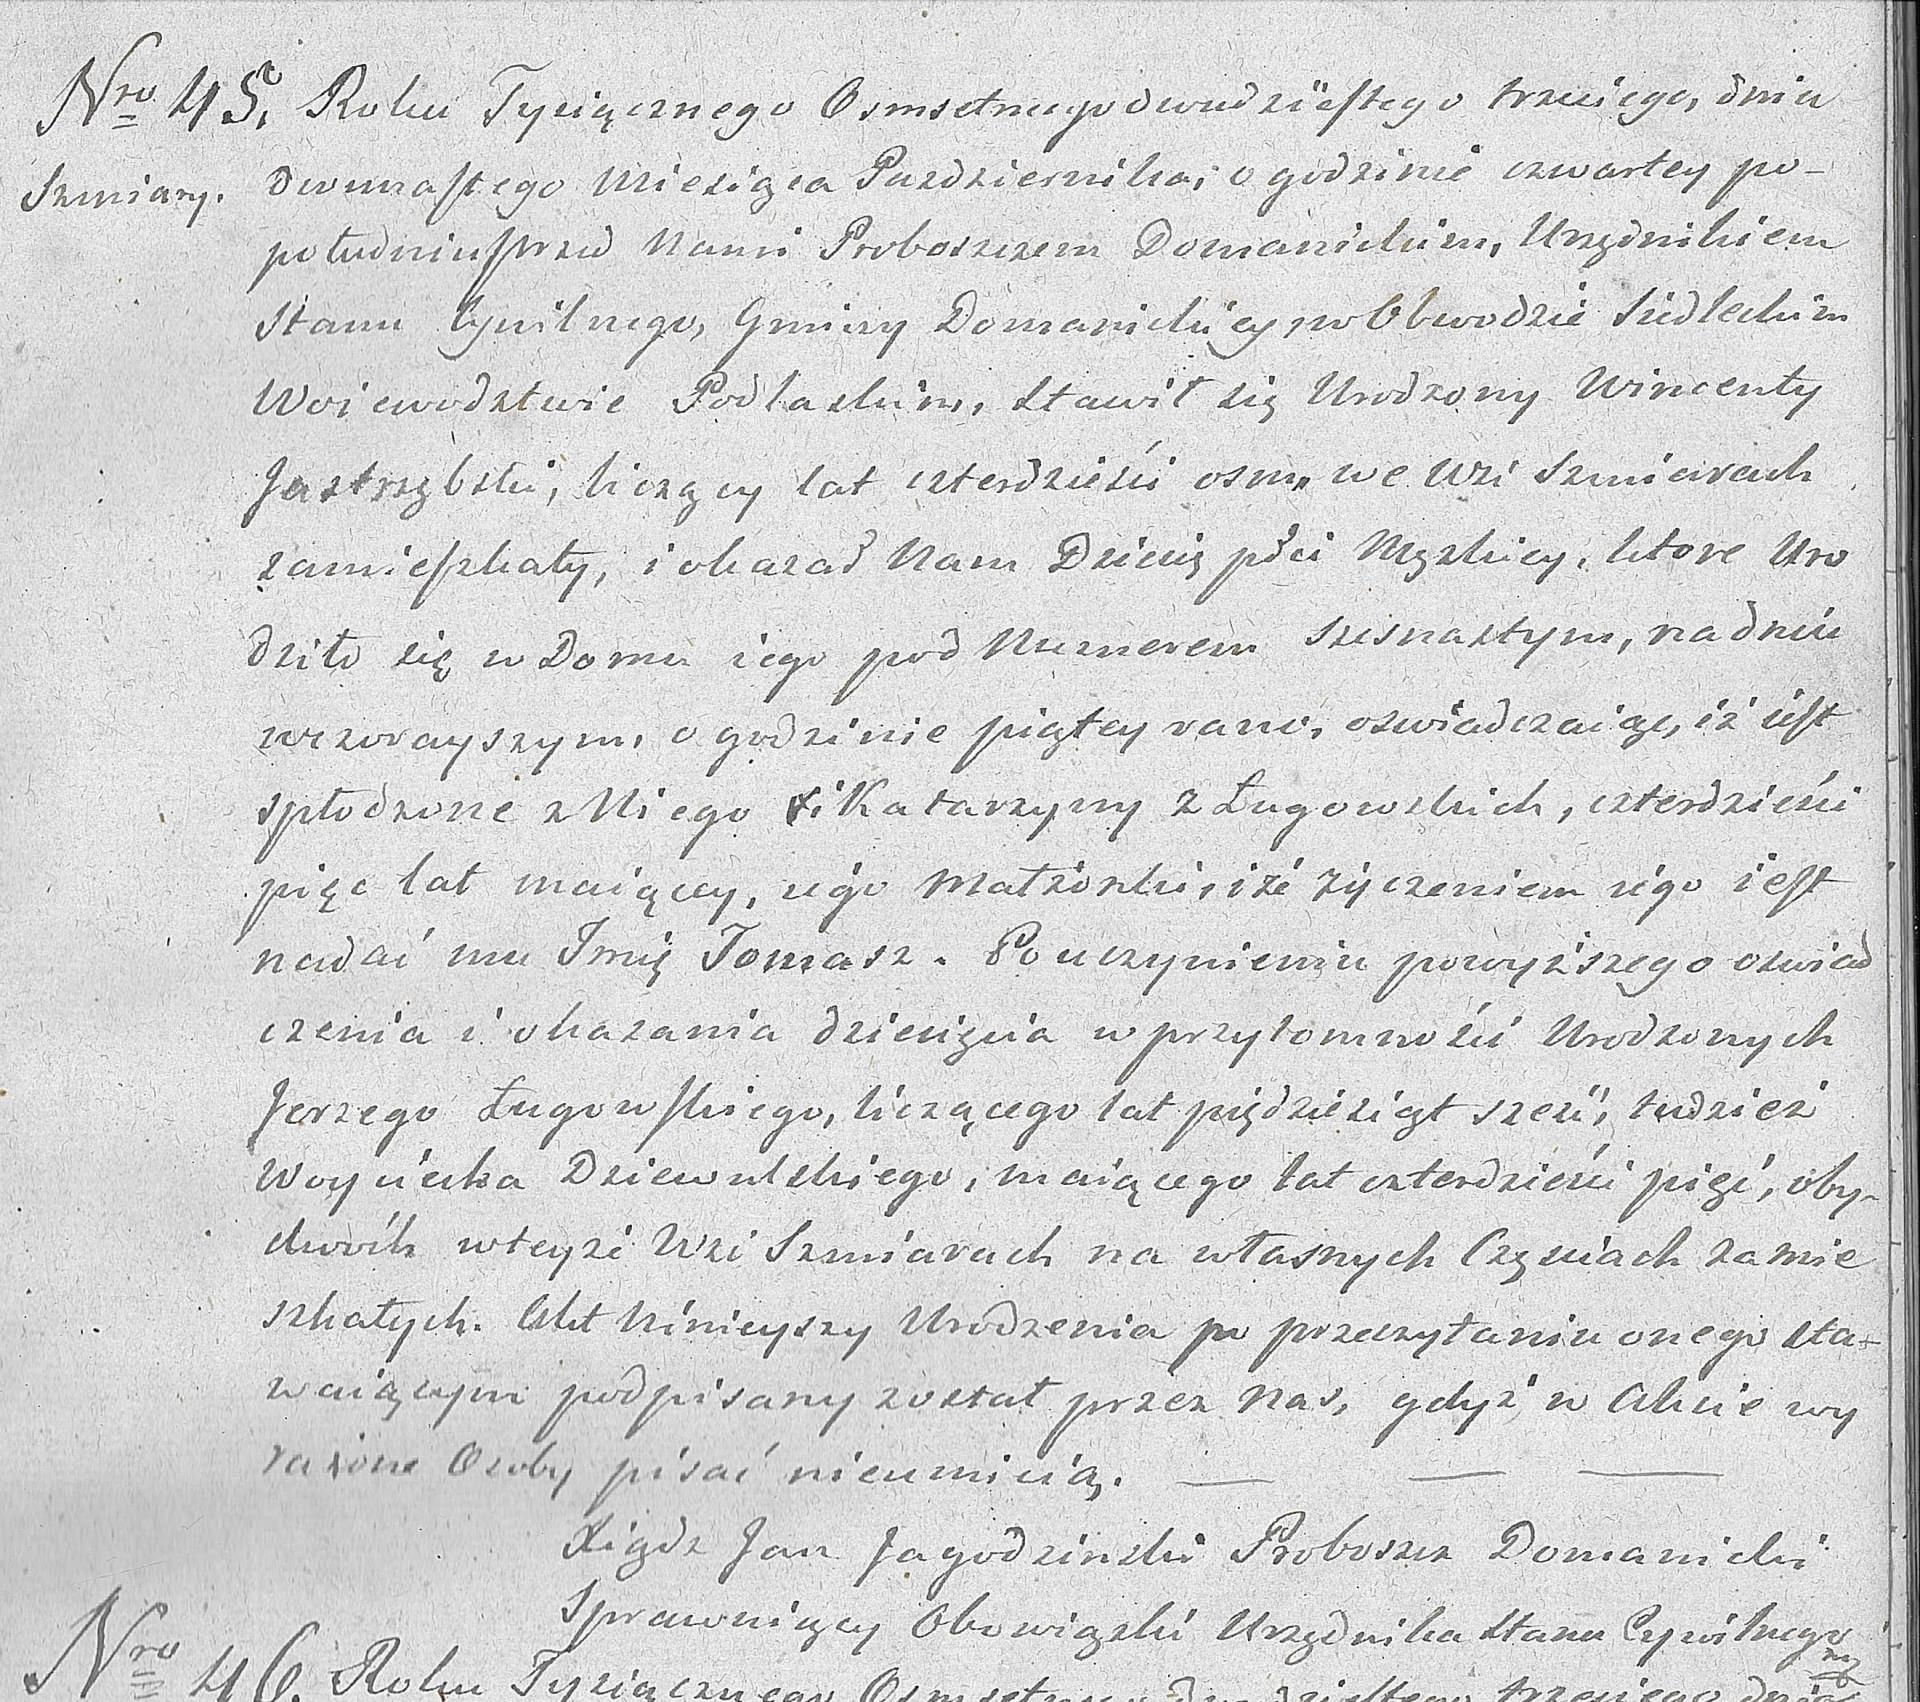 Nro 45. Roku Tysiącznego Osmsetnego dwudziestego trzeciego, dnia
Szmiary. dwunastego Miesiąca Pazdziernika, o godzinie czwartey po-
południu przed Nami Proboszczem Domanickim, Urzędnikiem
Stanu Cywilnego, Gminy Domanickiey w Obwodzie Siedleckim
Woiewodztwie Podlaskim, stawił się Urodzony Wincenty
Jastrzębski, liczący lat czterdzieści osm, we Wsi Szmiarach
zamieszkały, i okazał Nam Dziecię płci Męskiey, ktore Uro
dziło się w Domu iego pod Numerem szesnastym, na dniu
wczorayszym, o godzinie piątey rano, oswiadczaiąc, iż iest
spłodzone z Niego i Katarzyny z Ługowskich, czterdzieści
pięc lat maiącey, iego Małżonki, i że życzeniem iego iest
nadać mu Imię Tomasz. Po uczynieniu powyższego oswiad
czenia i okazania dziecięcia w przytomności Urodzonych
Jerzego Ługowskiego, liczącego lat piędziesiąt sześć, tudzież
Woyciecha Dziewulskiego, maiącego lat czterdzieści pięć, oby-
dwóch w teyże Wsi Szmiarach na własnych Częściach zamie
szkałych. Akt Ninieyszy Urodzenia po przeczytaniu onego sta-
waiącym podpisany został przez Nas, gdyż w Akcie wy
rażone Osoby pisać nieumieią.
Xiądz Jan Jagodzinski Proboszcz Domanicki
Sprawuiący Obowiązki Urzędnika Stanu Cywilnego
Nro 46. Roku Tysiącznego Osmsetnego dwudziestego trzeciego dnia